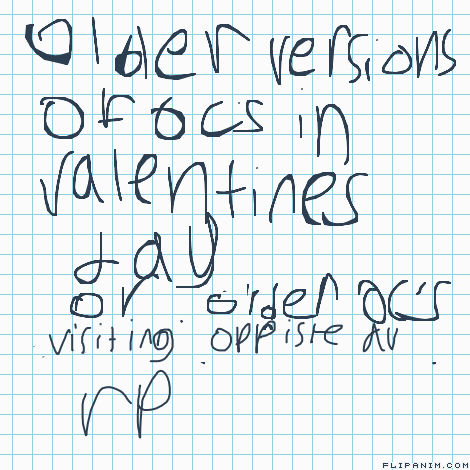 Older versions
of ocs in
valentines
day
or older ocs
visiting oppiste au
rp
FLIPANIM.COM